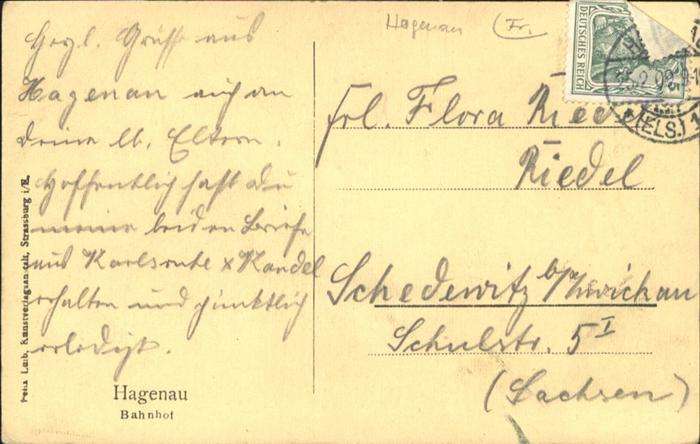 Hagenau (Fr.
DEUTSCHES REICH
(ELS.) 1
Herzl. Grüße aus
Hagenau auch an
deine lb. Eltern.
Hoffentlich hast du
meine beiden Briefe
aus Karlsruhe & Kandel
erhalten und pünktlich
erledigt.
Frl. Flora Riedel
Riedel
Schedewitz b/Zwickau
Schulstr. 5 I
(Sachsen)
Hagenau
Bahnhof
Kunstverlagsanstalt, Strassburg i/E.